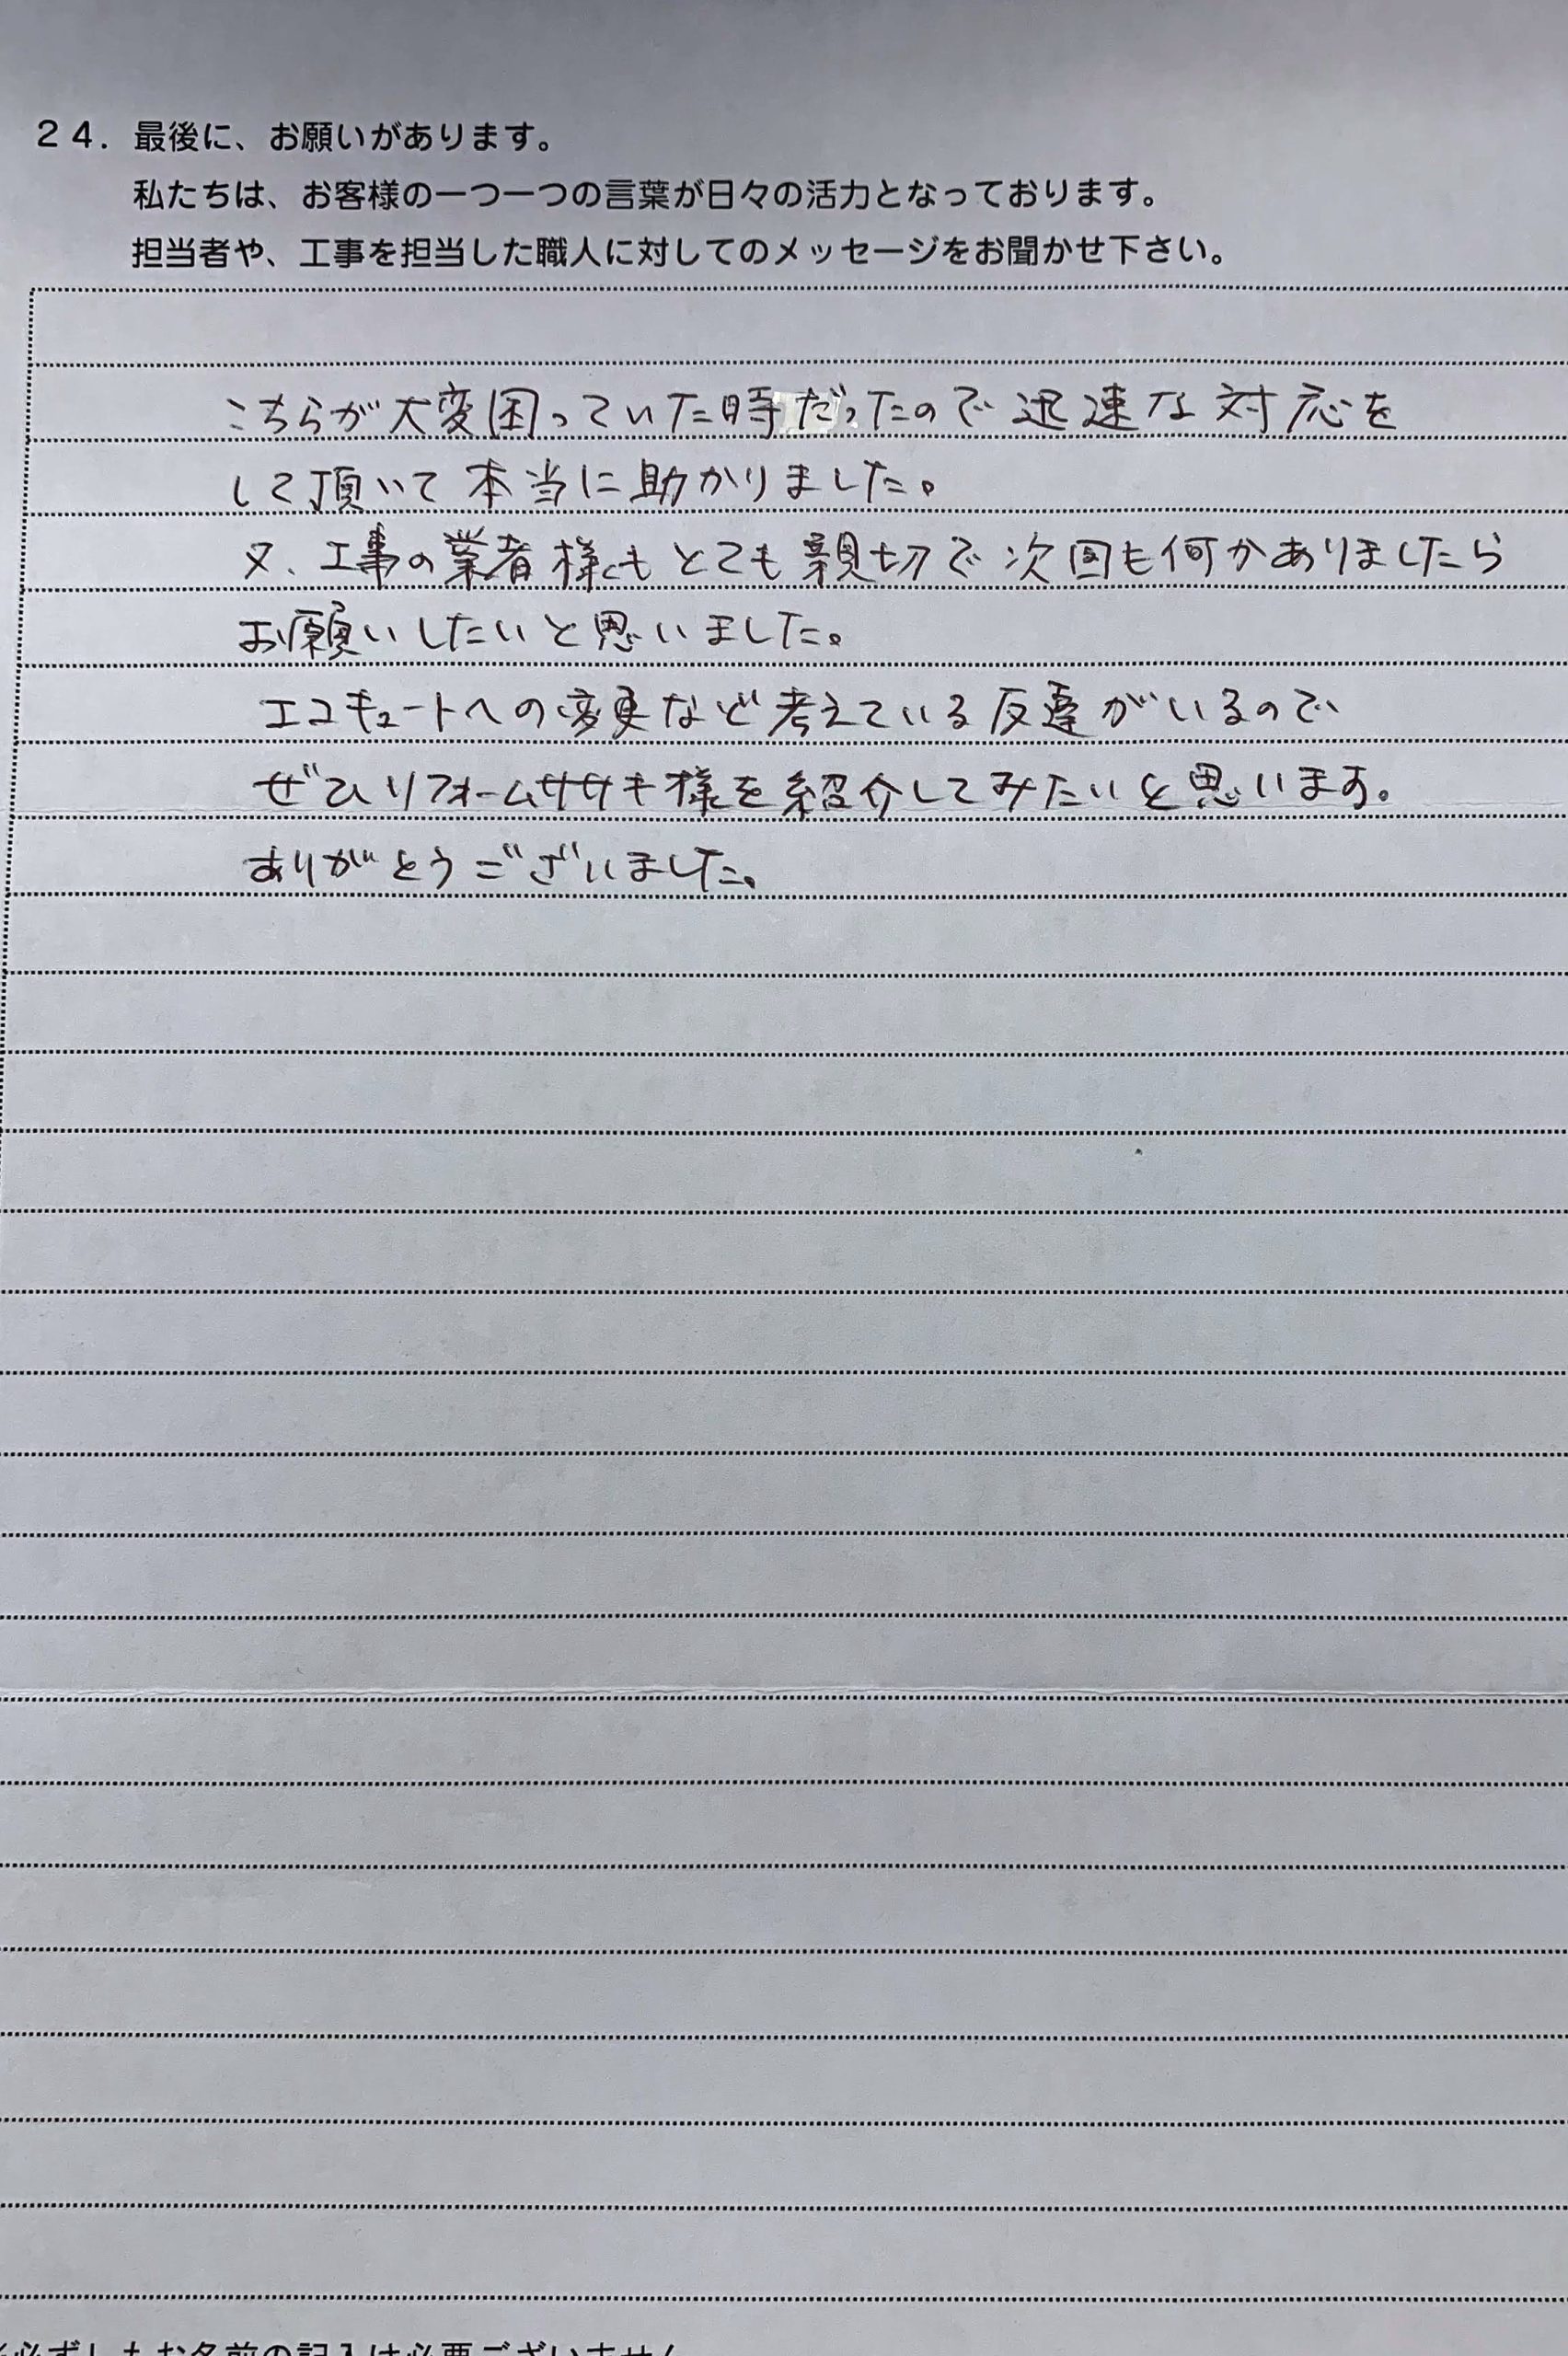 24. 最後に、お願いがあります。
私たちは、お客様の一つ一つの言葉が日々の活力となっております。
担当者や、工事を担当した職人に対してのメッセージをお聞かせ下さい。
こちらが大変困っていた時だったので迅速な対応を
して頂いて本当に助かりました。
又、工事の業者様もとても親切で次回も何かありましたら
お願いしたいと思いました。
エコキュートへの変更など考えている友達がいるので
ぜひリフォームササキ様を紹介してみたいと思います。
ありがとうございました。
必ずしもお名前の記入は必要ございません